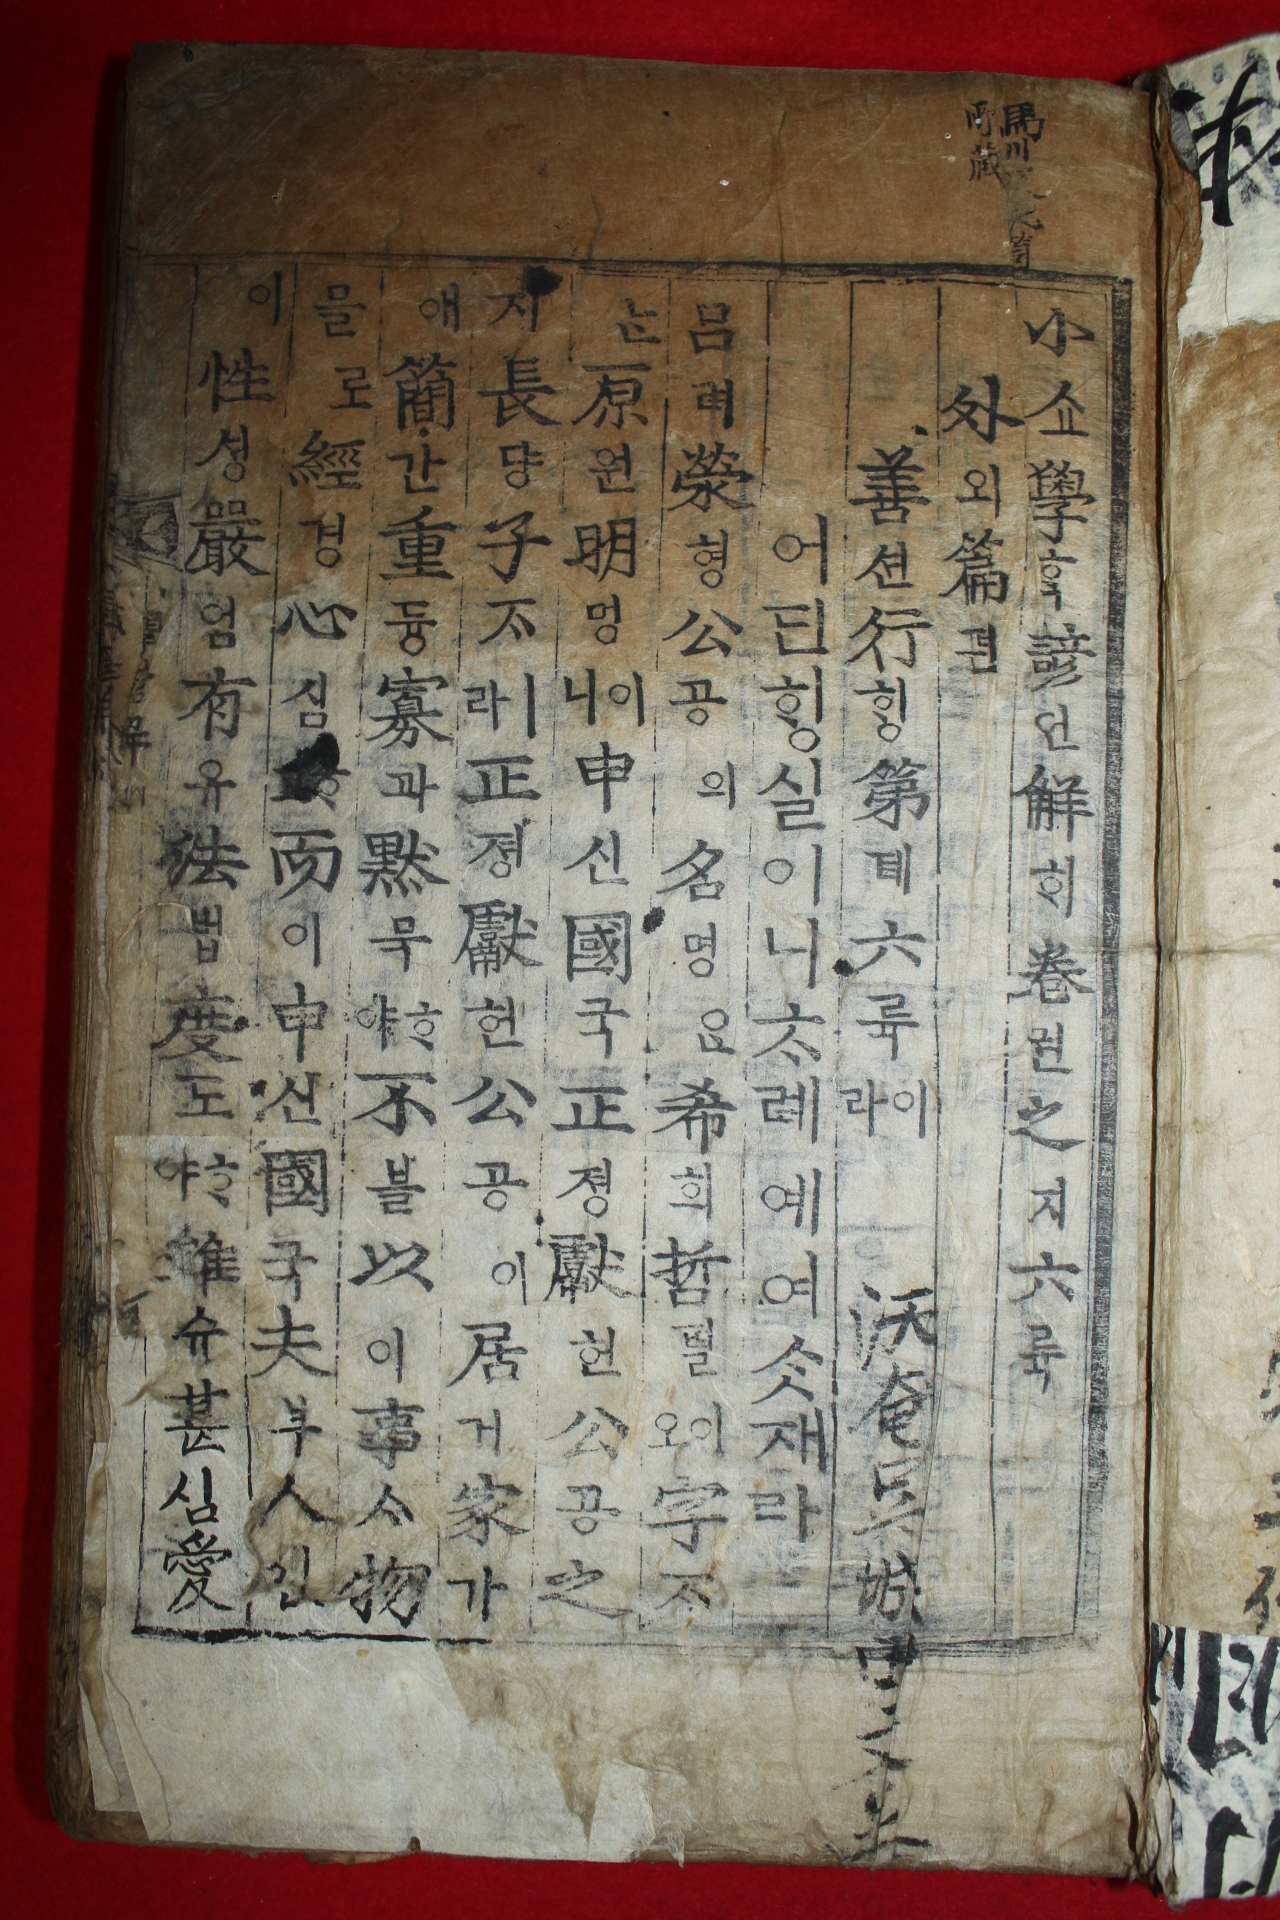 馬川
所藏
小쇼學ᄒᆞᆨ諺언解ᄒᆡ卷권之지六륙
外외篇편
善션行ᄒᆡᆼ第뎨六륙이라
어딘ᄒᆡᆼ실이니ᄎᆞ례예여ᄉᆞᆺ재라
呂려滎형公공의名명은希희哲텰이오字ᄌᆞ
ᄂᆞᆫ原원明명이니申신國국正졍獻헌公공之
지長댱子ᄌᆞㅣ라正졍獻헌公공이居거家가
애簡간重듕寡과黙묵ᄒᆞ야不블以이事ᄉᆞ物
믈로經경心심ᄒᆞ而이申신國국夫부人인
이性셩嚴엄有유法법度도ᄒᆞ야雖슈甚심愛